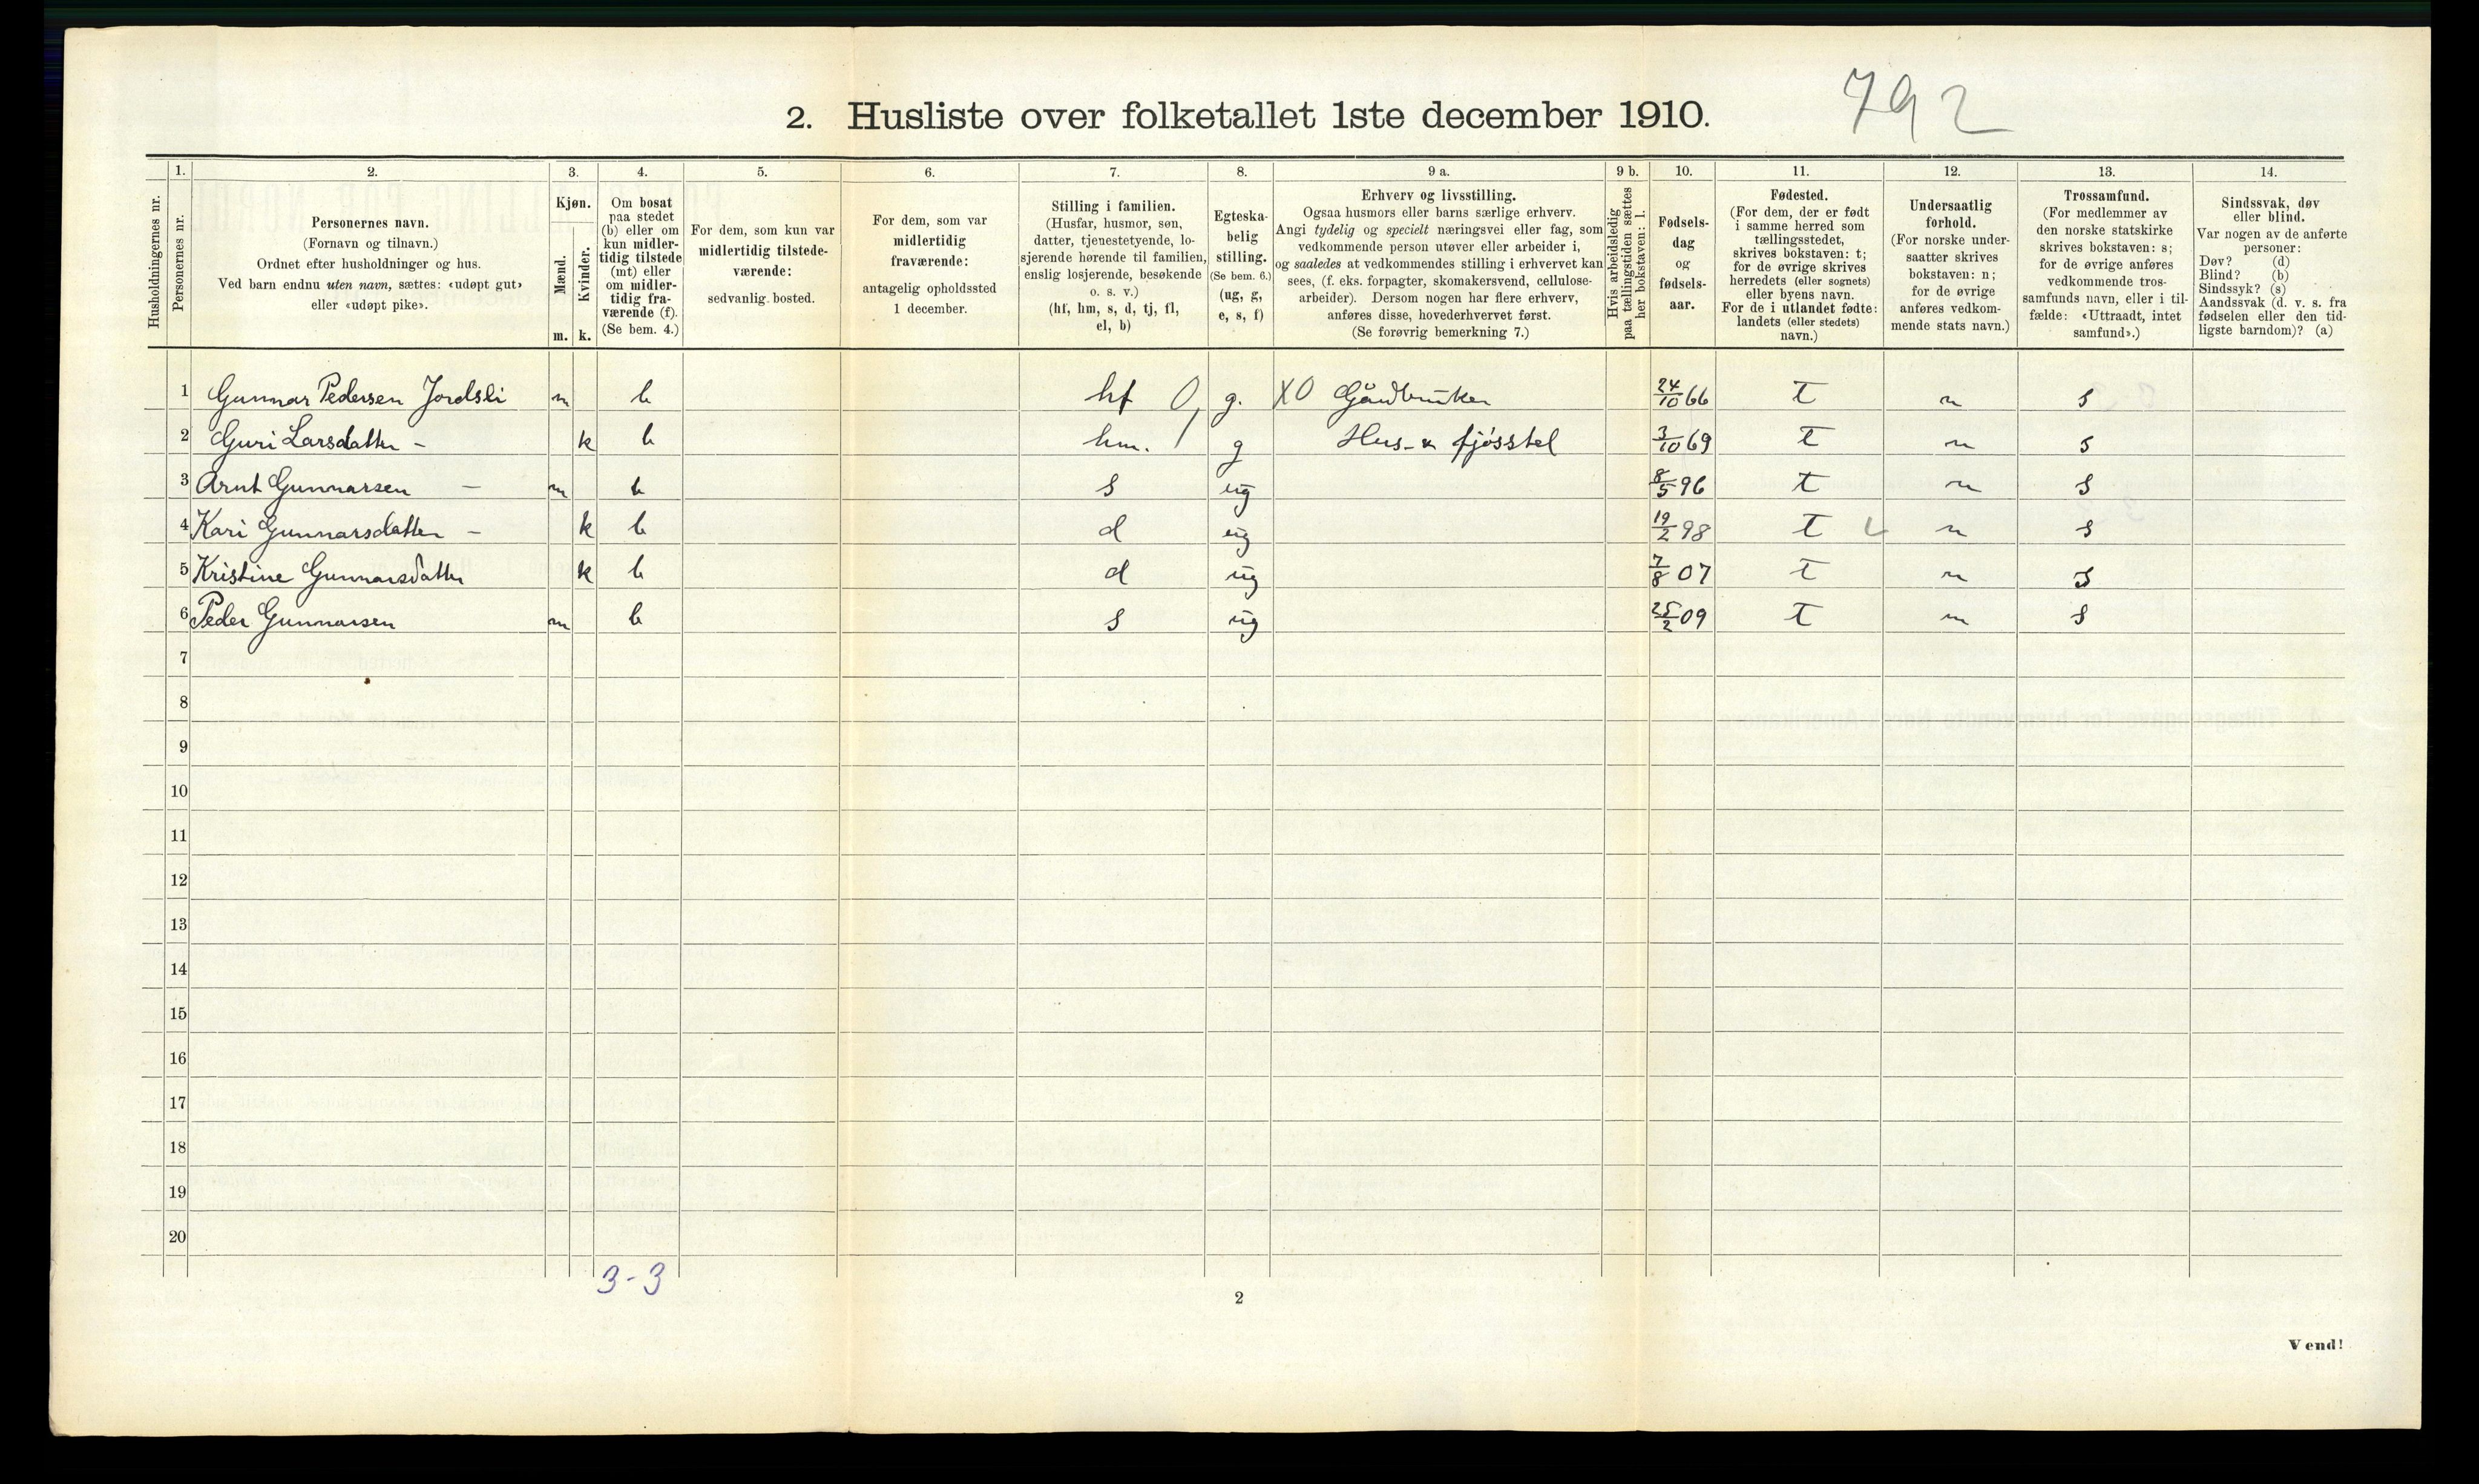 792
2. Husliste over folketallet 1ste december 1910.
Husholdningernes nr.
1.
Personernes nr.
2.
Personernes navn.
(Fornavn og tilnavn.)
Ordnet efter husholdninger og hus.
Ved barn endnu uten navn, sættes: «udøpt gut»
eller «udøpt pike».
3.
Kjøn.
Mænd.
Kvinder.
m. k.
4.
Om bosat
paa stedet
(b) eller om
kun midler-
tidig tilstede
(mt) eller
om midler-
tidig fra-
værende (f).
(Se bem. 4.)
5.
For dem, som kun var
midlertidig tilstede-
værende:
sedvanlig bosted.
6.
For dem, som var
midlertidig
fraværende:
antagelig opholdssted
1 december.
7.
Stilling i familien.
(Husfar, husmor, søn,
datter, tjenestetyende, lo-
sjerende hørende til familien,
enslig losjerende, besøkende
o. s. v.)
(hf, hm, s, d, tj, fl,
el, b)
8.
Egteska-
belig
stilling.
(Se bem. 6.)
(ug, g,
e, s, f)
9 a.
Erhverv og livsstilling.
Ogsaa husmors eller barns særlige erhverv.
Angi tydelig og specielt næringsvei eller fag, som
vedkommende person utøver eller arbeider i,
og saaledes at vedkommendes stilling i erhvervet kan
sees, (f. eks. forpagter, skomakersvend, cellulose-
arbeider). Dersom nogen har flere erhverv,
anføres disse, hovederhvervet først.
(Se forøvrig bemerkning 7.)
9 b.
Hvis arbeidsledig
paa tællingstiden sættes
her bokstaven: l.
10.
Fødsels-
dag
og
fødsels-
aar.
11.
Fødested.
(For dem, der er født
i samme herred som
tællingsstedet,
skrives bokstaven: t;
for de øvrige skrives
herredets (eller sognets)
eller byens navn.
For de i utlandet fødte:
landets (eller stedets)
navn.)
12.
Undersaatlig
forhold.
(For norske under-
saatter skrives
bokstaven: n;
for de øvrige
anføres vedkom-
mende stats navn.)
13.
Trossamfund.
(For medlemmer av
den norske statskirke
skrives bokstaven: s;
for de øvrige anføres
vedkommende tros-
samfunds navn, eller i til-
fælde: «Uttraadt, intet
samfund».)
14.
Sindssvak, døv
eller blind.
Var nogen av de anførte
personer:
Døv? (d)
Blind? (b)
Sindssyk? (s)
Aandssvak (d. v. s. fra
fødselen eller den tid-
ligste barndom)? (a)
1 Gunnar Pedersen Jordsli m b hf 0, g. X0 Gårdbruker 24/10 66 t n s
2 Guri Larsdatter - k b hm. 1 g Hus- & fjösstel 3/10 69 t n s
3 Arnt Gunnarsen - m b s ug 8/5 96 t n s
4 Kari Gunnarsdatter - k b d ug 19/2 98 t n s
5 Kristine Gunnarsdatter k b d ug 7/8 07 t n s
6 Peder Gunnarsen m b s ug 25/2 09 t n s
7
8
9
10
11
12
13
14
15
16
17
18
19
20
3-3
2
Vend!